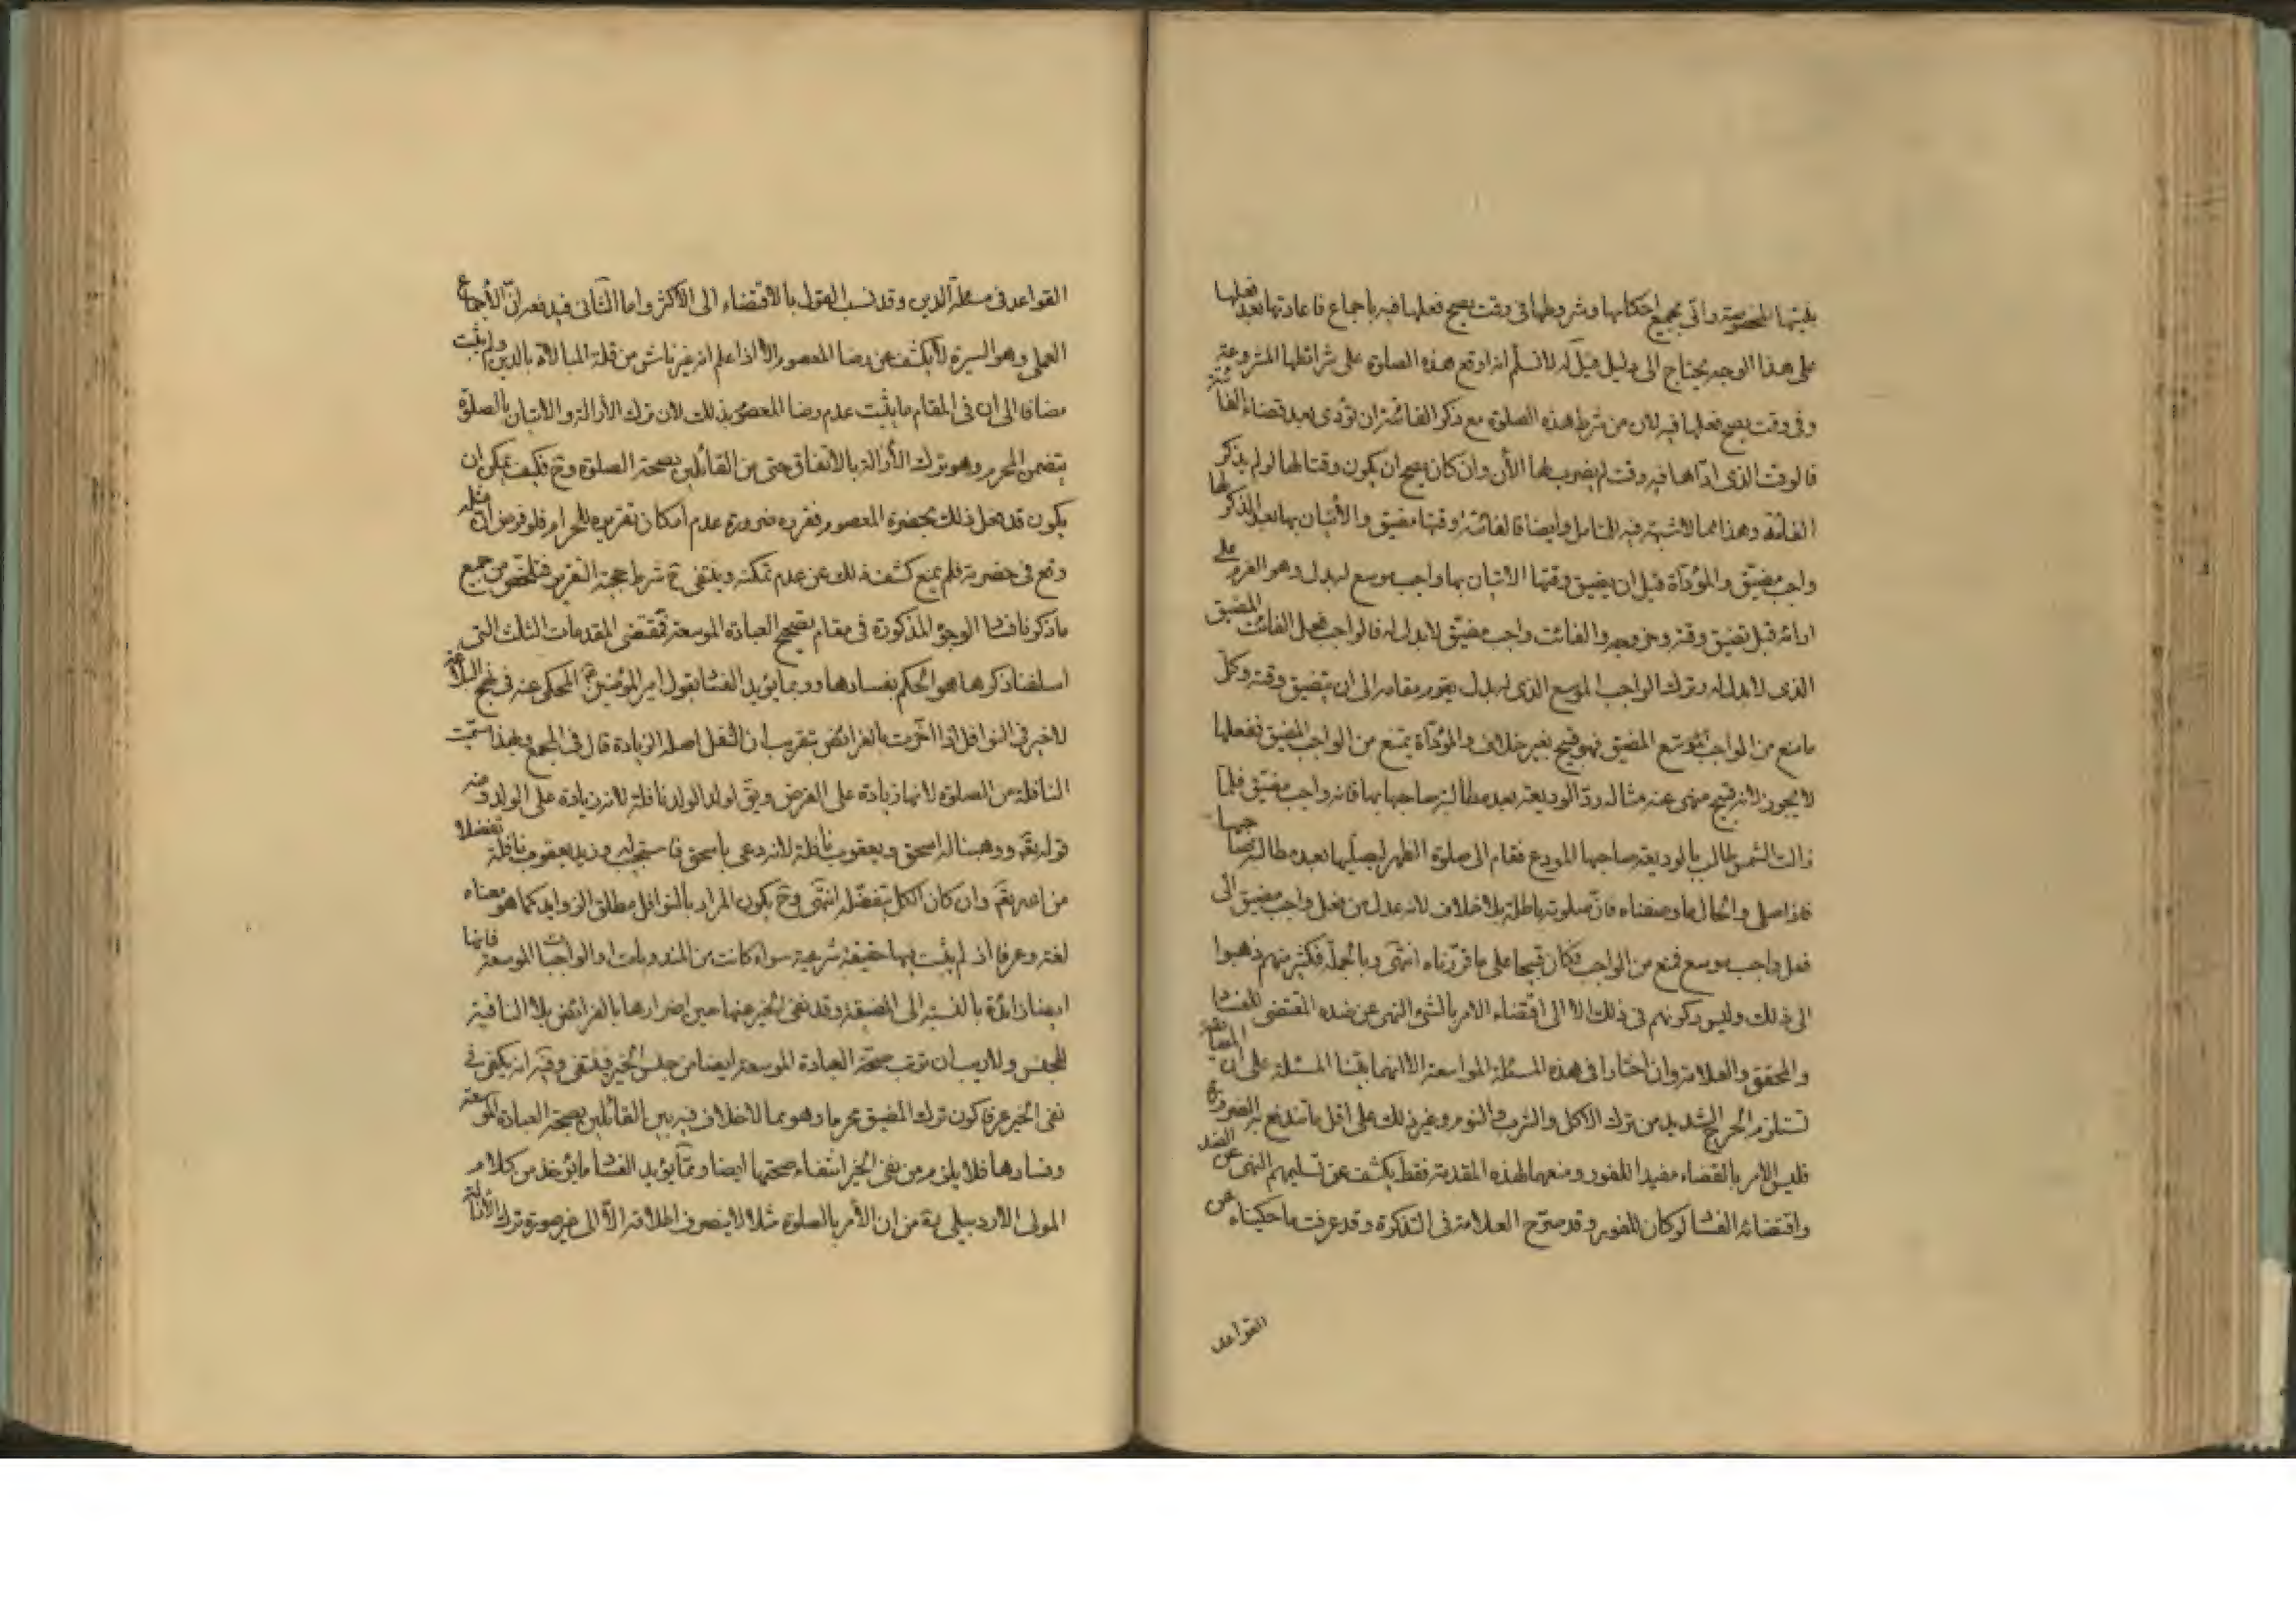 بنيتها المخصوصة واتى بجميع احكامها وشروطها فى وقت يصح فعلها فيه باجماع فاعادتها بعد فعلها
على هذا الوجه يحتاج الى دليل قيل له لا نسلم انه اوقع هذه الصلوة على شرائطها المشروعة
وفى وقت يصح فعلها فيه لان من شرط هذه الصلوة مع ذكر الفائتة ان تؤدى بعد قضاء الفائتة
فالوقت الذى ادّاها فيه وقت لم يضرب لها الأن وان كان يصح ان يكون وقتا لها لو لم يذكر
الفائتة وهذا مما لا شبهة فيه للمتامل وايضا فالفائتة وقتها مضيق والأتيان بها بعد الذكر لها
واجب مضيّق والمؤدّاة قبل ان يضيق وقتها الاتيان بها واجب موسع له بدل وهو العزم على
ادائه قبل تضيق وقته وخروجه والفائت واجب مضيّق لا بدل له فالواجب فعل الفائت المضيق
الذى لا بدل له وترك الواجب الموسع الذى له بدل يقوم مقامه الى ان يتضيق وقته وكل
ما منع من الواجب الموسّع المضيق فهو قبيح بغير خلاف والمؤدّاة يمنع من الواجب المضيق ففعلها
لا يجوز لانه قبيح منهى عنه مثاله ردّ الوديعة بعد مطالبة صاحبها بها فانه واجب مضيّق فلمّا
زالت الشمس طالب بالوديعة صاحبها المودع فقام الى صلوة الظهر ليصلّيها بعد مطالبة صاحبها
فاذا صلى والحال ما وصفناه فانّ صلوته باطلة بلا خلاف لانه عدل من فعل واجب مضيق الى
فعل واجب موسع فمنع من الواجب فكان قبيحا على ما قرّرناه انتهى وبالجملة فكثير منهم ذهبوا
الى ذلك وليس ركونهم فى ذلك الا الى اقتضاء الامر بالشئ النهى عن ضده المقتضى للفساد
والمحقق والعلامة وان اختارا فى هذه المسئلة المواسعة الا انهما بنيا المسئلة على ان المضايقة
تستلزم الحرج الشديد من ترك الاكل والشرب والنوم وغير ذلك على اقل ما تندفع به الضرورة
فليس الامر بالقضاء مفيدا للفور ومنعهما لهذه المقدمة فقط يكشف عن تسليمهم النهى عن الضد
واقتضائه الفساد لو كان للفور وقد صرّح العلامة فى التذكرة وقد عرفت ما حكيناه عن
القواعد
القواعد فى مسئلة الدين وقد نسب القول بالاقتضاء الى الاكثر واما الثانى فيدفعه انّ الأجماع
العملى وهو السيرة لا يكشف عن رضا المعصوم الا اذا علم انه غير ناش من قلة المبالاة بالدين ولم يثبت
مضافا الى ان فى المقام ما يثبت عدم رضا المعصوم بذلك لان ترك الأزالة والاتيان بالصلوة
يتضمن المحرم وهو ترك الأزالة بالاتفاق حتى من القائلين بصحة الصلوة وح فكيف يمكن ان
يكون قد فعل ذلك بحضرة المعصوم فقرره ضرورة عدم امكان تقريره للحرام فلو فرض ان مثله
وقع فى حضرته فلم يمنع كشف ذلك عن عدم تمكنه وينتفى ح شرط حجية التقرير فتلخص من جميع
ما ذكرنا فساد الوجوه المذكورة فى مقام تصحيح العبادة الموسعة فمقتضى المقدمات الثلث التى
اسلفنا ذكرها هو الحكم بفسادها وربما يؤيد الفساد بقول امير المؤمنين ع المحكى عنه فى نهج البلاغة
لا خير فى النوافل اذا اضرت بالفرائض بتقريب ان النفل اصله الزيادة قال فى المجمع وبهذا سميت
النافلة من الصلوة لانها زيادة على الفرض ويق لولد الولد نافلة لانه زيادة على الولد ومنه
قوله تعم ووهبنا له اسحق ويعقوب نافلة لانه دعى باسحق فاستجيب له وزيد يعقوب نافلة تفضلا
من الله تعم وان كان الكل بتفضله انتهى وح يكون المراد بالنوافل مطلق الزوايد كما هو معناه
لغة وعرفا اذ لم يثبت لها حقيقة شرعية سواء كانت من المندوبات او الواجبات الموسعة فانها
ايضا زائدة بالنسبة الى المضيقة وقد نفى الخير عنها حين اضرارها بالفرائض بلا النافية
للجنس ولا ريب ان ترتب صحة العبادة الموسعة ايضا من جنس الخير فينتفى وفيه انه يكفى فى
نفى الخير عرفا كون ترك المضيق محرما وهو مما لا خلاف فيه بين القائلين بصحة العبادة الموسعة
وفسادها فلا يلزم من نفى الخير انتفاء صحتها ايضا وممّا يؤيد الفساد ما يؤخذ من كلام
المولى الاردبيلى ره من ان الأمر بالصلوة مثلا لا ينصرف اطلاقه الّا الى غير صورة ترك الأزالة